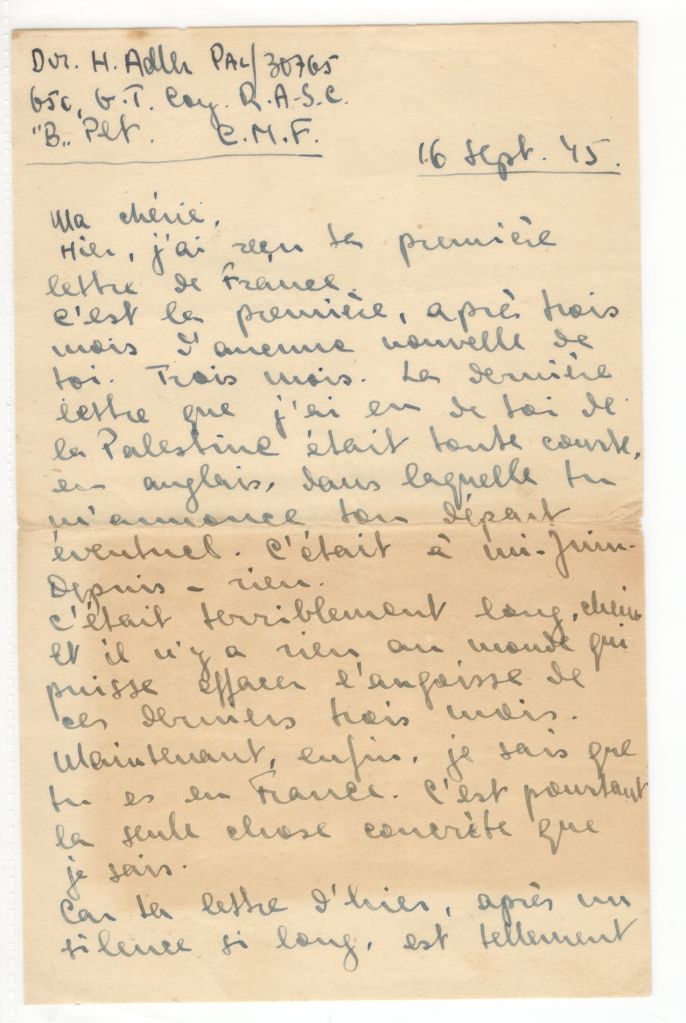 Dvr. H. Adler PAL/30765
650, G.T. Coy. R.A.S.C.
"B" Plt. C.M.F.
16 Sept. 45.
Ma chérie,
Hier, j'ai reçu ta première
lettre de France.
C'est la première, après trois
mois d'aucune nouvelle de
toi. Trois mois. La dernière
lettre que j'ai eu de toi de
la Palestine était toute courte,
en anglais, dans laquelle tu
m'annonce ton départ
éventuel. C'était à mi-Juin.
Depuis - rien.
C'était terriblement long, chérie
et il n'y a rien au monde qui
puisse effacer l'angoisse de
ces derniers trois mois.
Maintenant, enfin, je sais que
tu es en France. C'est pourtant
la seule chose concrète que
je sais.
Car ta lettre d'hier, après un
silence si long, est tellement